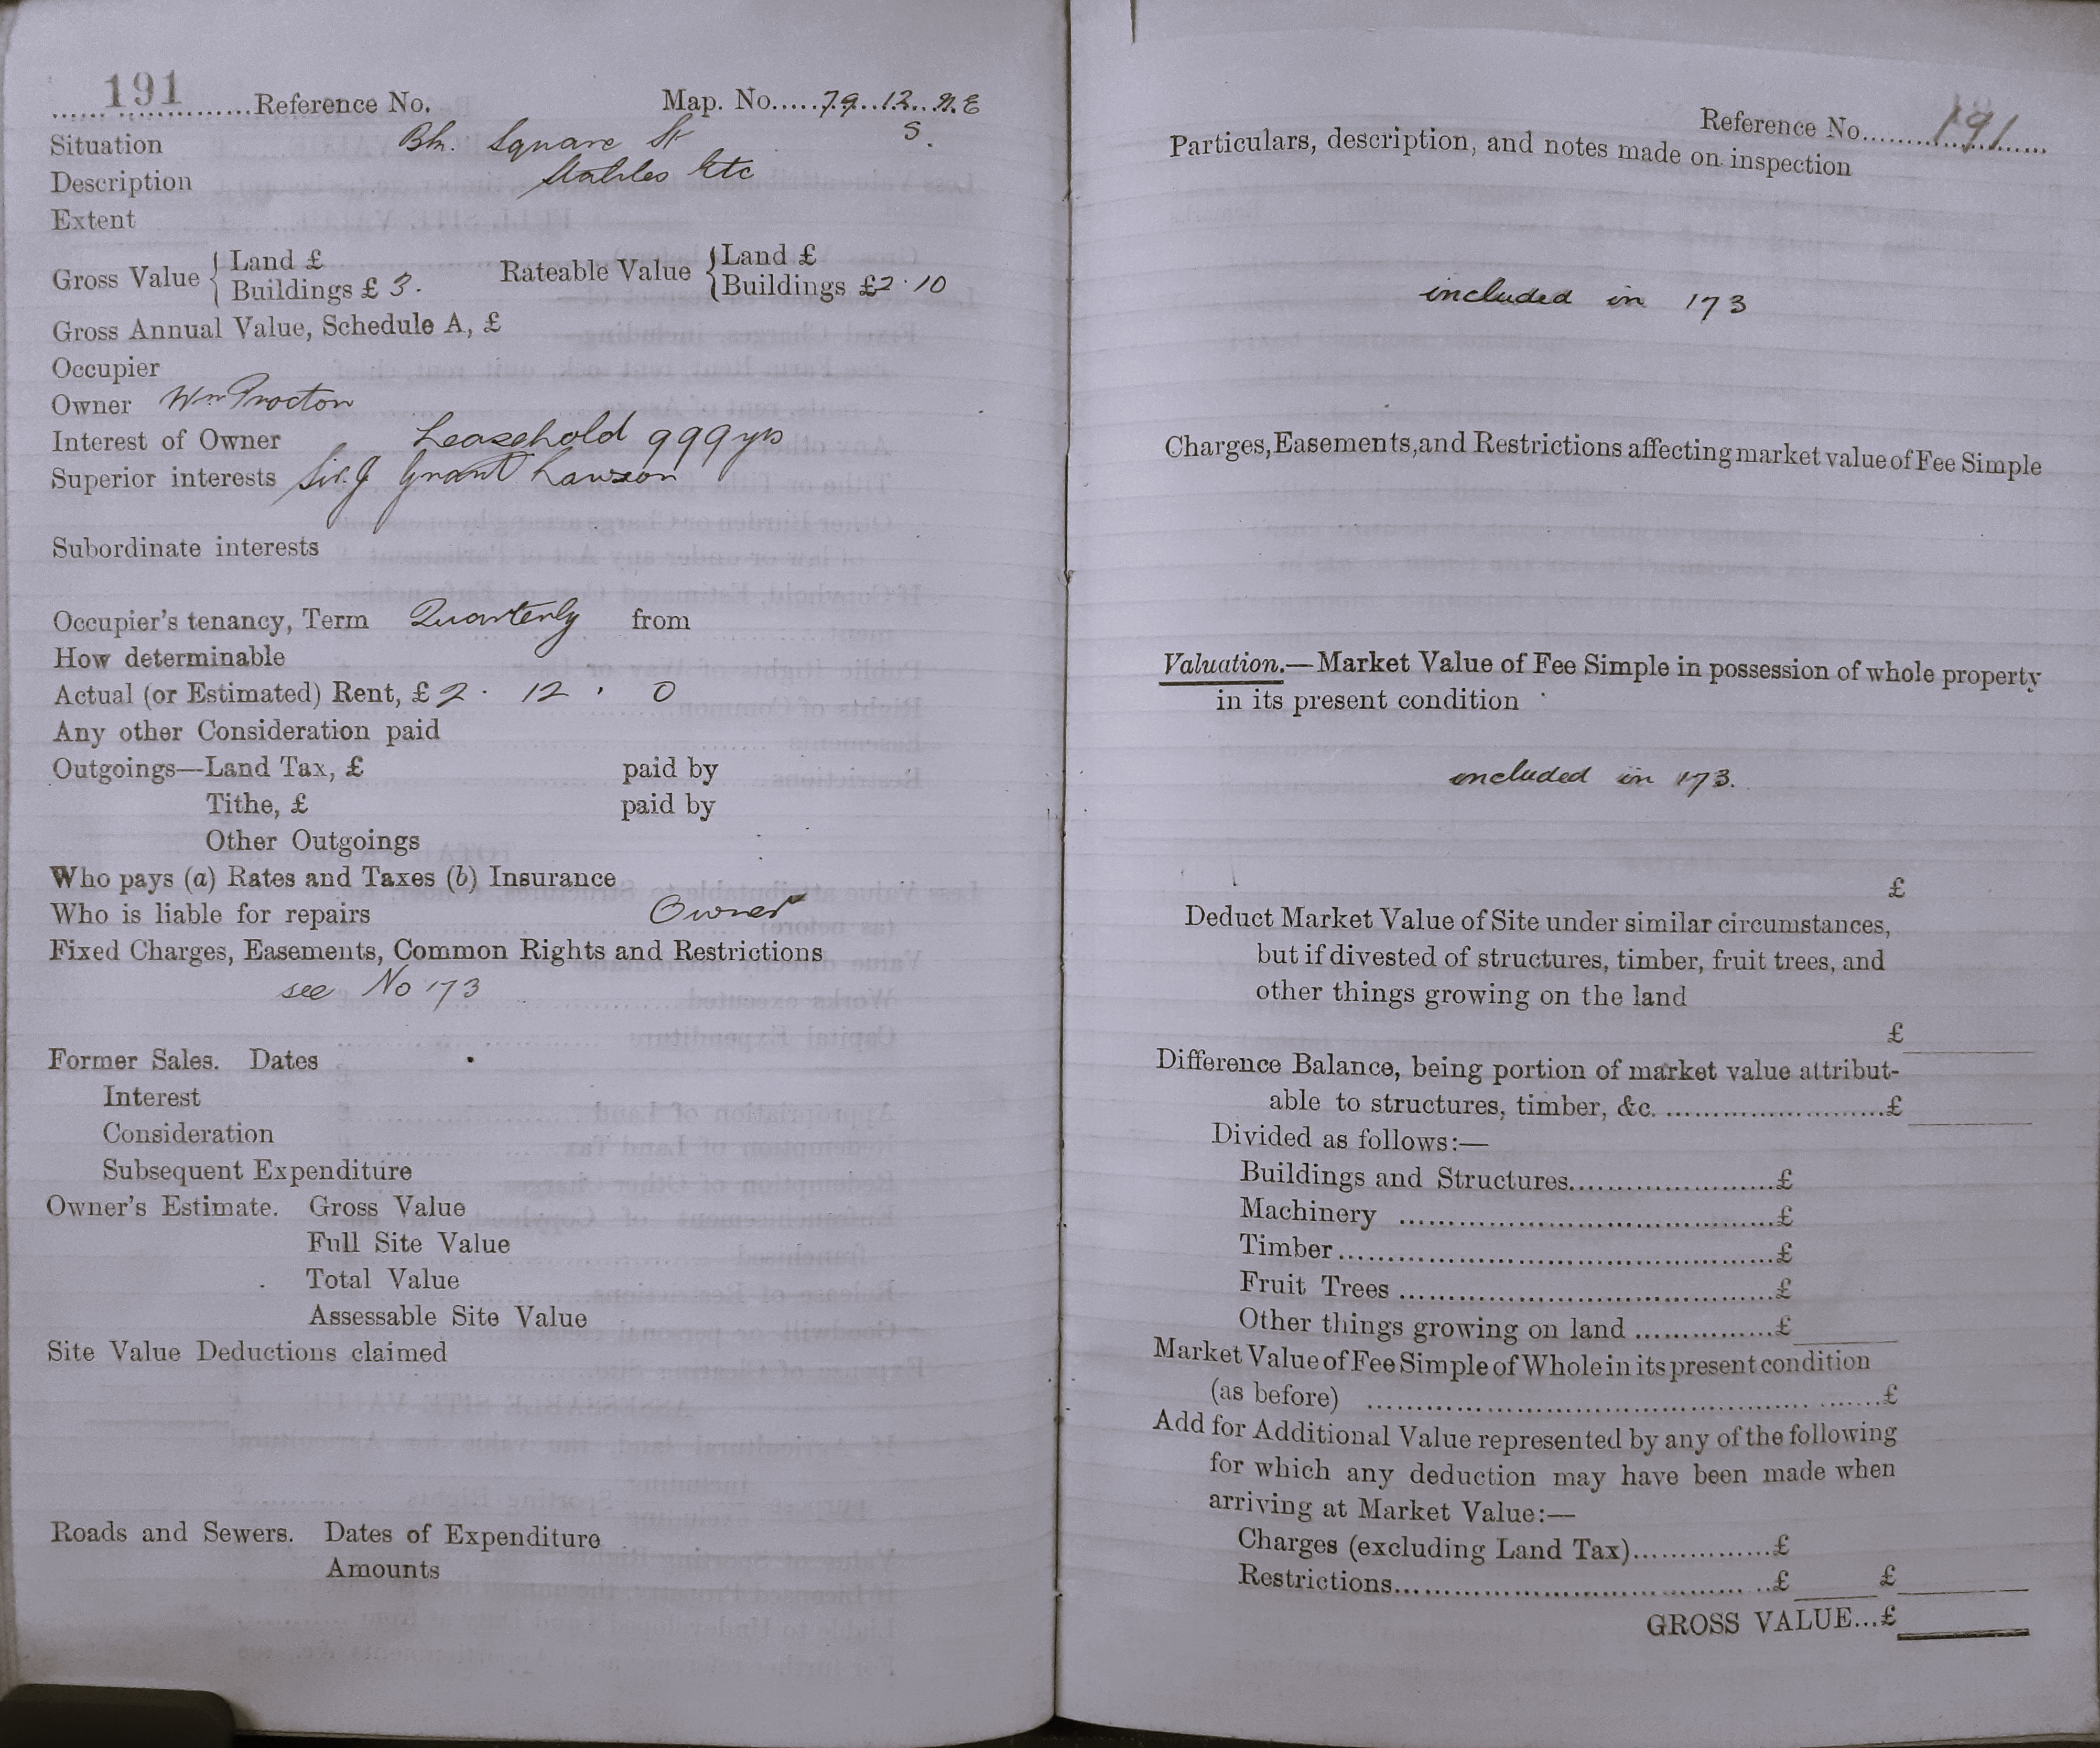 191 Reference No. Map. No. 79. 12. N.E
S.
Situation Bk. Square St
Description Stables Etc
Extent
Gross Value { Land £
Buildings £ 3. Rateable Value { Land £
Buildings £2.10
Gross Annual Value, Schedule A, £
Occupier
Owner Wm Procton
Interest of Owner Leasehold 999 yrs
Superior interests Sir. J Grant Lawson
Subordinate interests
Occupier's tenancy, Term Quarterly from
How determinable
Actual (or Estimated) Rent, £ 2. 12. 0
Any other Consideration paid
Outgoings—Land Tax, £ paid by
Tithe, £ paid by
Other Outgoings
Who pays (a) Rates and Taxes (b) Insurance
Who is liable for repairs Owner
Fixed Charges, Easements, Common Rights and Restrictions
see No 173
Former Sales. Dates
Interest
Consideration
Subsequent Expenditure
Owner's Estimate. Gross Value
Full Site Value
Total Value
Assessable Site Value
Site Value Deductions claimed
Roads and Sewers. Dates of Expenditure
Amounts
Reference No. 191
Particulars, description, and notes made on inspection
included in 173
Charges, Easements, and Restrictions affecting market value of Fee Simple
Valuation.—Market Value of Fee Simple in possession of whole property
in its present condition
included in 173.
£
Deduct Market Value of Site under similar circumstances,
but if divested of structures, timber, fruit trees, and
other things growing on the land
£
Difference Balance, being portion of market value attribut-
able to structures, timber, &c. £
Divided as follows:—
Buildings and Structures £
Machinery £
Timber £
Fruit Trees £
Other things growing on land £
Market Value of Fee Simple of Whole in its present condition
(as before) £
Add for Additional Value represented by any of the following
for which any deduction may have been made when
arriving at Market Value:—
Charges (excluding Land Tax) £
Restrictions £ £
GROSS VALUE...£